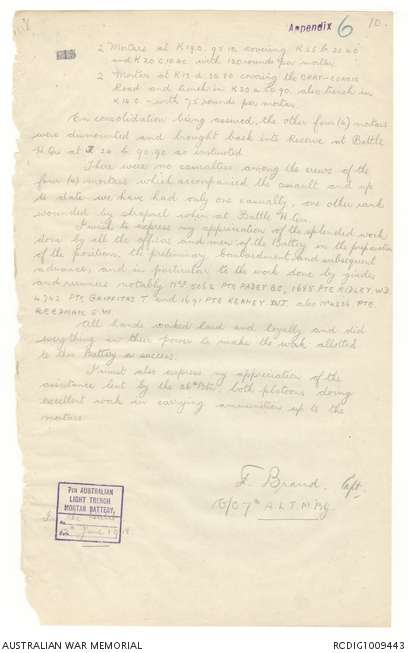 Appendix 6 10.
2 Mortars at K 19 D. 90 10 covering K 25 b 20 40
and K 20 C 10 20 with 120 rounds per mortar.
2 Mortars at K 19 d 50 80 covering the BRAY-CORBIE
Road and trench in K 20 a 60 90 also trench in
K 14 C - with 75 rounds per mortar.
On consolidation being assured, the other four (4) mortars
were dismounted and brought back into Reserve at Battle
H.Qrs at 24 b 90.90 as instructed
There were no casualties among the crews of the
four (4) mortars which accompanied the assault and up
to date we have had only one casualty, one other rank
wounded by shrapnel when at Battle H. Qrs.
I wish to express my appreciation of the splendid work
done by all the officers and men of the Battery in the preparation
of the positions, the preliminary bombardment and subsequent
advance, and in particular to the work done by guides
and runners notably No 5062 Pte PABEY BC, 1685 PTE RIDLEY, W.J
4742 PTE GRIFFITHS T and 1691 PTE KEANEY D.J. also PTE.
REEDMAN G.W
All hands worked hard and loyally and did
everything in their power to make the work allotted
to this Battery a success.
I must also express my appreciation of the
assistance lent by the 26th Btn, both platoons doing
excellent work in carrying ammunition up to the
mortars
F. Brand Capt.
O/C 7th A.L.T.M.By
7TH AUSTRALIAN
LIGHT TRENCH
MORTAR BATTERY.
In the Field
12th June 1918
AUSTRALIAN WAR MEMORIAL
RCDIG1009443